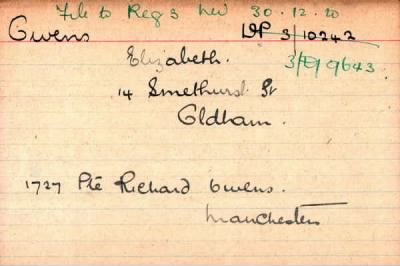 File to Reg 3 Led 30.12.20
Owens DP 3/10242
Elizabeth. 3/E/9643
14 Smethurst St
Oldham.
1727 Pte Richard Owens.
Manchesters